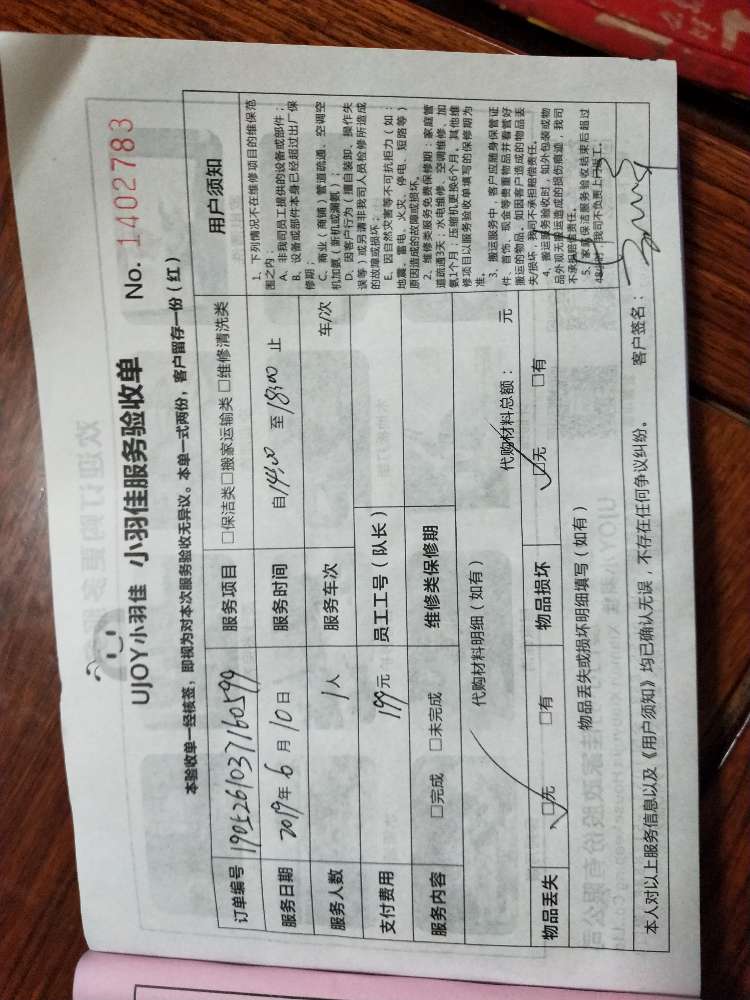 UJOY小羽佳 小羽佳服务验收单 No. 1402783
本验收单一经核签，即视为对本次服务验收无异议。本单一式两份，客户留存一份（红）
订单编号 服务项目 □保洁类□搬家运输类□维修清洗类
服务日期 2019年6月10日 服务时间 自14:00 至18:00 止
服务人数 1人 服务车次 车/次
支付费用 199元 员工工号（队长）
服务内容 □完成 □未完成 维修类保修期
代购材料明细（如有） 代购材料总额： 元
物品丢失 □无 □有 物品损坏 □无 □有
物品丢失或损坏明细填写（如有）
用户须知
1、下列情况不在维修项目的维保范
围之内：
A、非我司员工提供的设备或部件；
B、设备或部件本身已经超过出厂保
修期；
C、商业（商铺）管道疏通、空调空
机加氨（新机或漏氨）；
D、因客户行为（擅自装卸、操作失
误等）或另请非我司人员检修所造成
的故障或损坏；
E、因自然灾害等不可抗拒力（如：
地震、雷电、火灾、停电、短路等）
原因造成的故障或损坏。
2、维修类服务免费保修期：家庭管
道疏通3天；水电维修、空调维修、加
氨1个月；压缩机更换6个月。其他维
修项目以服务验收单填写的保修期为
准。
3、搬运服务中，客户应随身保管证
件、首饰、现金等贵重物品并看管好
搬运的物品，如因客户造成的物品丢
失/损坏，我司不承担赔偿责任。
4、搬运服务验收时，如外包装或物
品外观无搬运造成的损伤痕迹，我司
不承担赔偿责任。
5、家庭保洁服务验收结束后超过
48小时，我司不负责上门返工。
本人对以上服务信息以及《用户须知》均已确认无误，不存在任何争议纠纷。 客户签名：